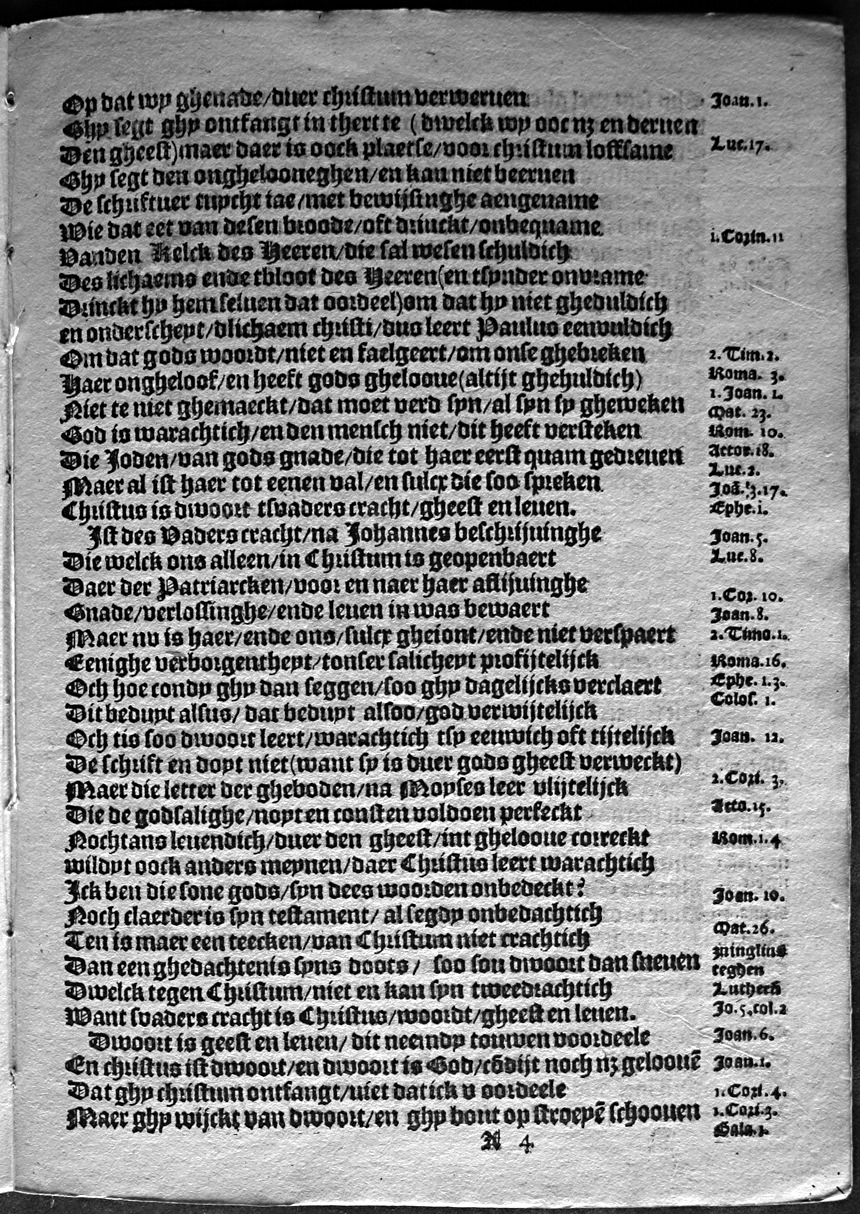 Op dat wy ghenade/duer christum verweruen Joan.1.
Ghy segt ghy ontfangt in thert te ( dwelck wy ooc nz en deruen
Den gheest)maer daer is oock plaetse/voor christum loffsame Luc.17.
Ghy segt den onghelooneghen/en kan niet beeruen
De schriftuer tuycht iae/met bewijsinghe aengename
Wie dat eet van desen broode/oft drinckt/onbequame
Vanden Kelck des Heeren/die sal wesen schuldich 1.Corin.11
Des lichaems ende tbloot des Heeren(en tsynder onvrame
Drinckt hy hem seluen dat oordeel)om dat hy niet gheduldich
en onderscheyt/dlichaem christi/dus leert Paulus eenvuldich
Om dat gods woordt/niet en faelgeert/om onse ghebreken 2.Tim.2.
Haer ongheloof/en heeft gods ghelooue(altijt ghehuldich) Roma. 3.
Niet te niet ghemaeckt/dat moet verd syn/al syn sy gheweken 1.Joan. 1.
God is warachtich/en den mensch niet/dit heeft versteken Mat. 23.
Rom. 10.
Die Joden/van gods gnade/die tot haer eerst quam gedreuen Actor.18.
Maer al ist haer tot eenen val/en sulcx die soo spreken Luc.2.
Joā.3.17.
Christus is dwoort tsvaders cracht/gheest en leuen. Ephe.1.
Ist des Vaders cracht/na Johannes beschrijuinghe Joan.5.
Die welck ons alleen/in Christum is geopenbaert Luc.8.
Daer der Patriarcken/voor en naer haer aflijuinghe
Gnade/verlossinghe/ende leuen in was bewaert 1.Cor. 10.
Joan.8.
Maer nv is haer/ende ons/sulcx gheiont/ende niet verspaert 2.Timo.1.
Eenighe verborgentheyt/tonser salicheyt profijtelijck Roma.16.
Och hoe condy ghy dan seggen/soo ghy dagelijcks verclaert Ephe.1.3.
Dit beduyt alsus/ dat beduyt alsoo/god verwijtelijck Colos. 1.
Och tis soo dwoort leert/warachtich tsy eeuwich oft tijtelijck Joan. 12.
De schrift en doyt niet(want sy is duer gods gheest verweckt)
Maer die letter der gheboden/na Moyses leer vlijtelijck 2.Cori. 3.
Die de godsalighe/noyt en consten voldoen perfeckt Acto.15.
Nochtans leuendich/duer den gheest/int ghelooue correckt Rom.1.4
wildyt oock anders meynen/daer Christus leert warachtich
Ick ben die sone gods/syn dees woorden onbedeckt? Joan. 10.
Noch claerder is syn testament/ al segdy onbedachtich
Ten is maer een teecken/van Christum niet crachtich Mat.26.
Dan een ghedachtenis syns doots/ soo sou dwoort dan sneuen zuinglius
teghen
Dwelck tegen Christum/niet en kan syn tweedrachtich Lutherū
Want svaders cracht is Christus/woordt/gheest en leuen. Jo.5.col.2
Dwoort is geest en leuen/ dit neemdy touwen voordeele Joan.6.
En christus ist dwoort/en dwoort is God/cōdijt noch nz geloouē Joan.1.
Dat ghy christum ontfangt/niet dat ick v oordeele 1.Cori.4.
Maer ghy wijckt van dwoort/en ghy bout op stroeyē schoouen 1.Cori.3.
Gala.1.
A 4